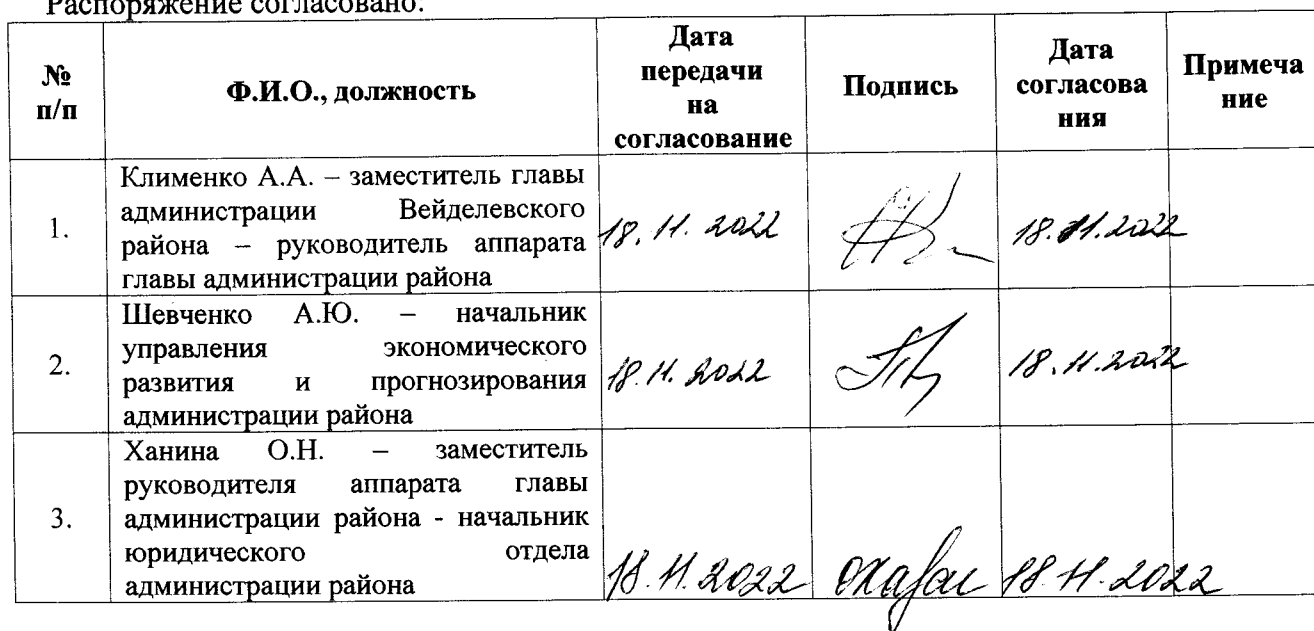 Распоряжение согласовано:
№ п/п
Ф.И.О., должность
Дата передачи на согласование
Подпись
Дата согласова ния
Примеча ние
1.
Клименко А.А. – заместитель главы
администрации Вейделевского
района – руководитель аппарата
главы администрации района
18.11.2022
18.11.2022
2.
Шевченко А.Ю. – начальник
управления экономического
развития и прогнозирования
администрации района
18.11.2022
18.11.2022
3.
Ханина О.Н. – заместитель
руководителя аппарата главы
администрации района - начальник
юридического отдела
администрации района
18.11.2022
18.11.2022